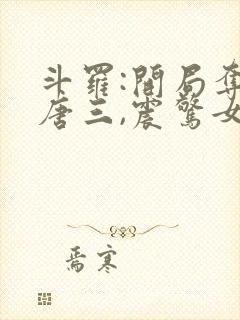 斗羅:開局奪
唐三,震驚女
焉寒